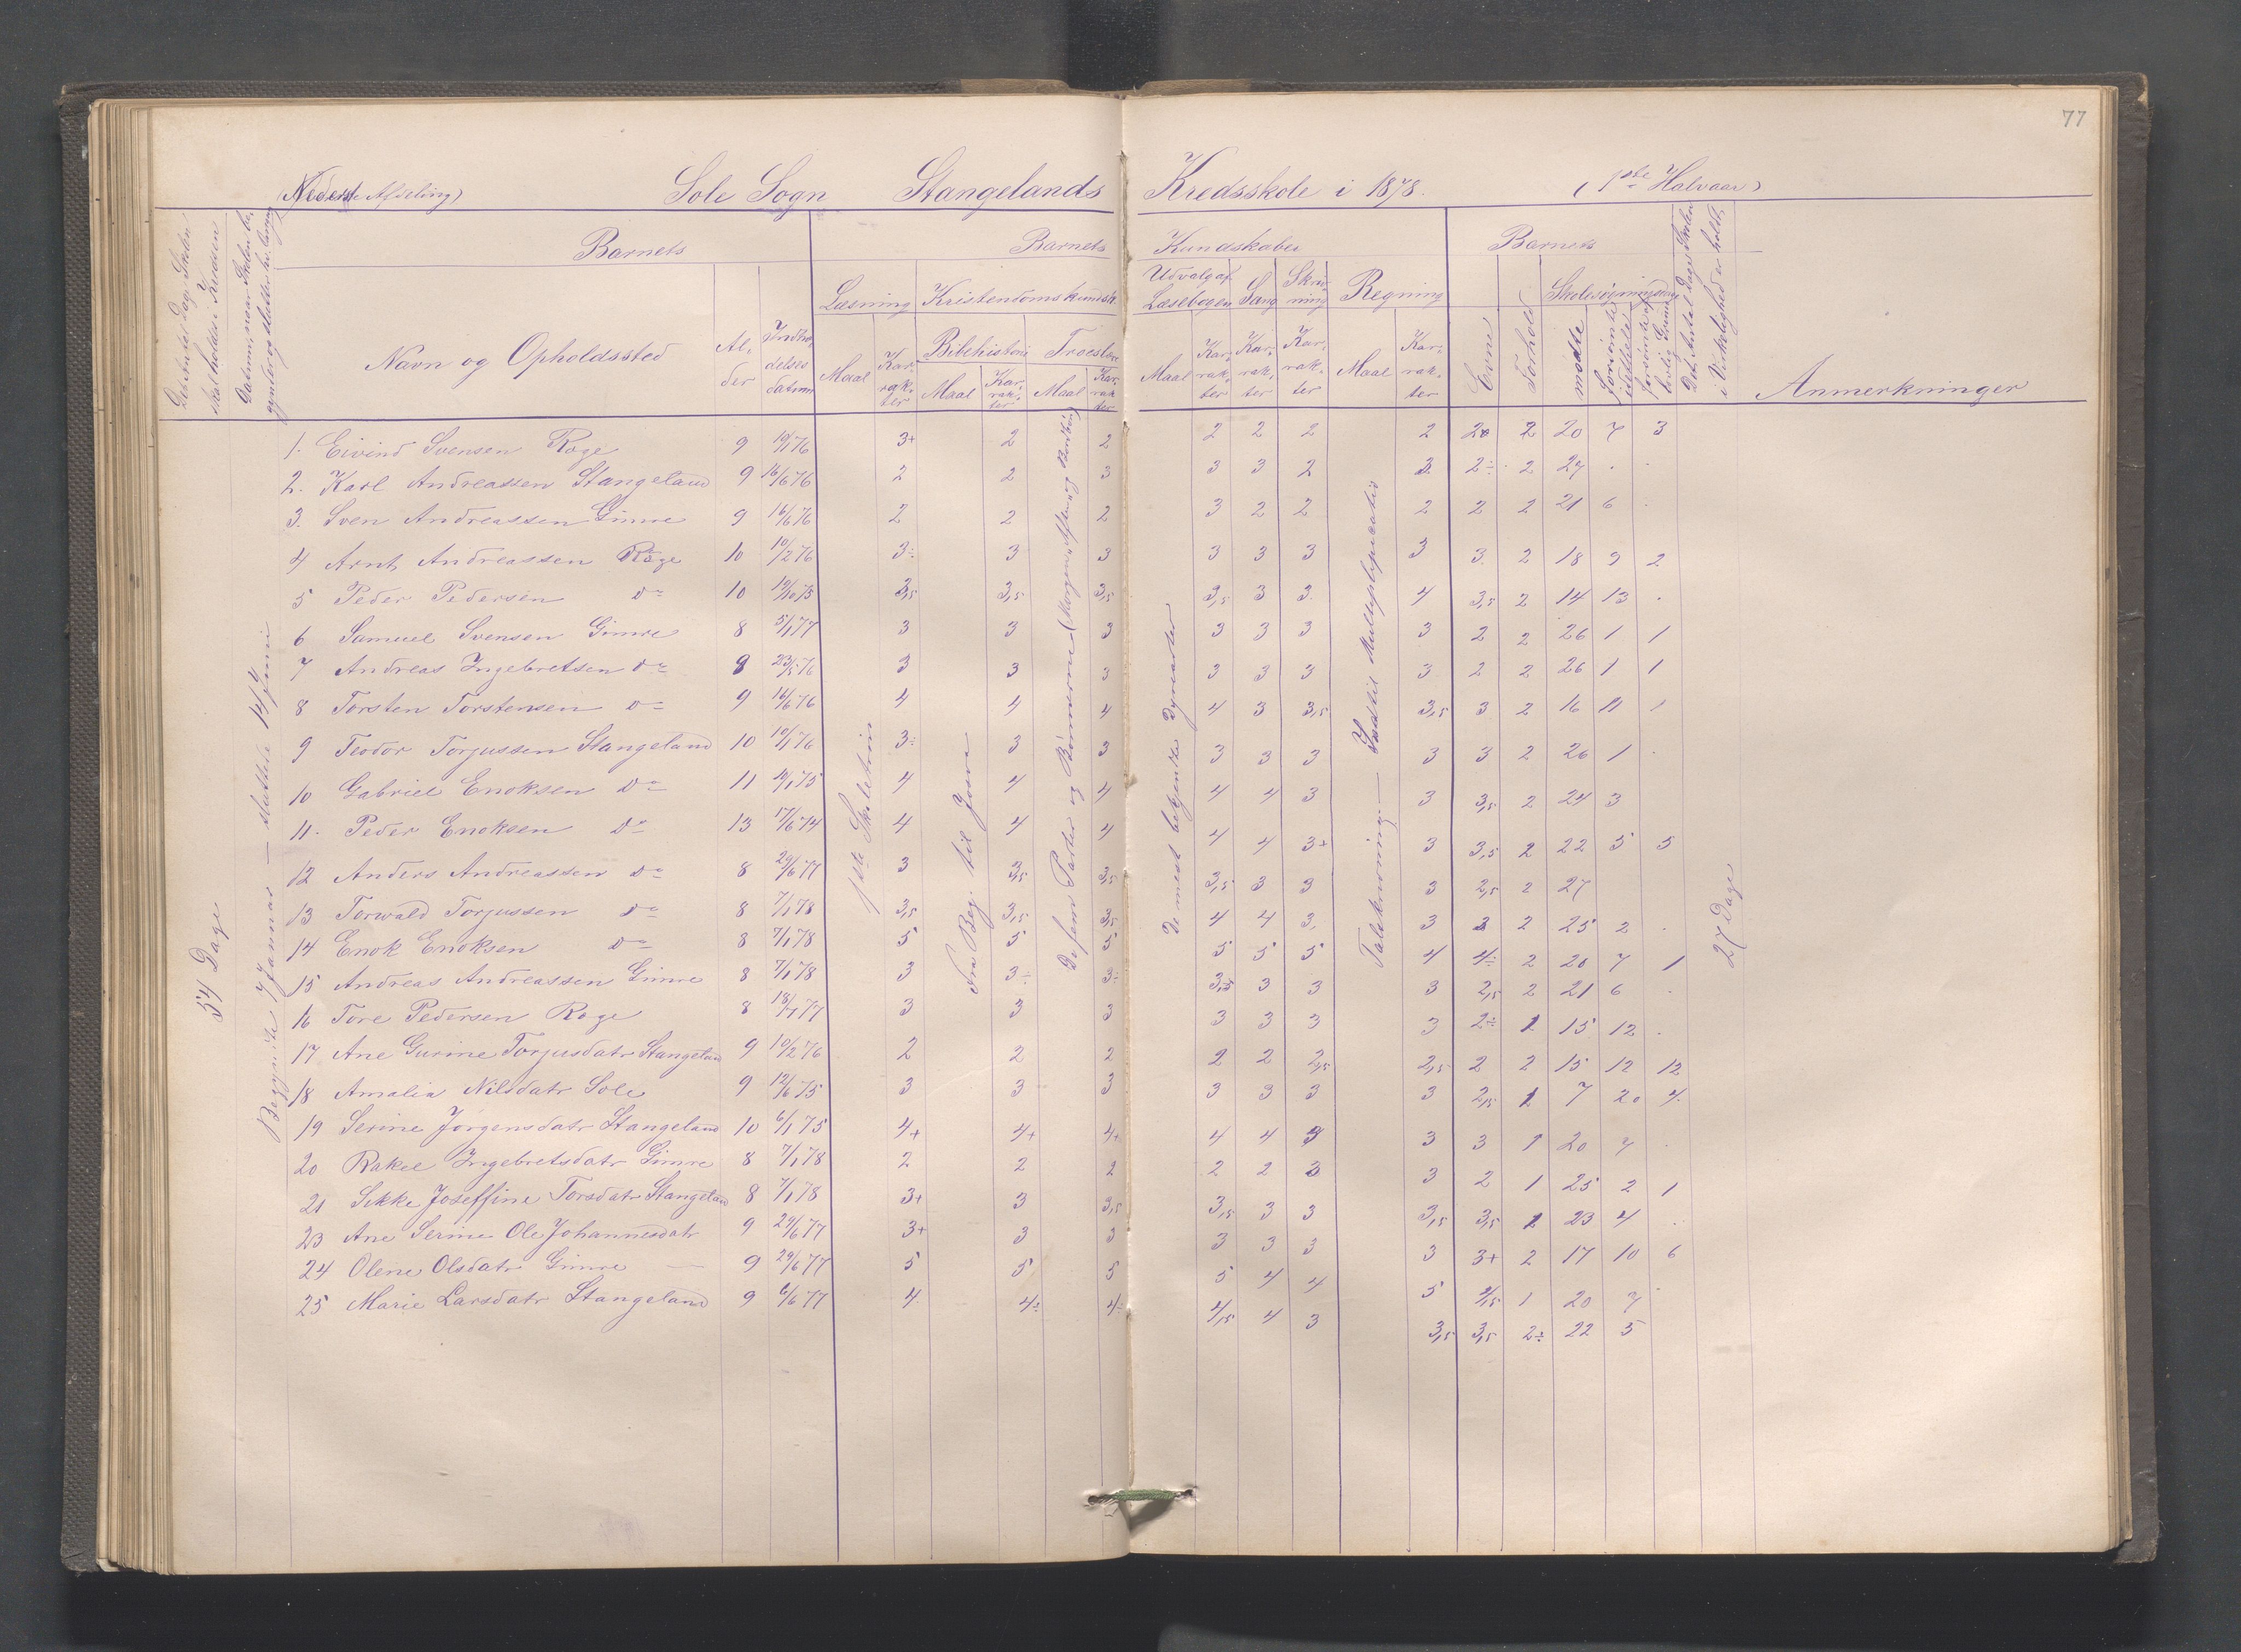 77
(Nederste Afdeling) Sole Sogn Stangelands Kredsskole i 1878. (1ste Halvaar)
Det Antal Dage Skolen skal holdes i Kredsen
Datum, naar Skolen begynder og slutter
Barnets Barnets Kundskaber Barnets
Læsning Kristendomskundsk. Udvalg af Læsebogen Sang Skrivning Regning Skolesøgningsdage
Navn og Opholdssted Alder Indtrædelses datum Bibelhistorie Troeslære
Maal Karakter Maal Karakter Maal Karakter Maal Karakter Karakter Karakter Maal Karakter Evne Forhold mødte forsømte idethele forsømte af lovlig Grund
Det Antal Dage Skolen i Virkelighed er holdt.
Anmerkninger
54 Dage
Begyndte 7 Januar — sluttede 14 Juni
1ste Skoletrin
Fra Beg. til Josva
De fem Parter og Bønnerne (Morgen, Aften og Bordbøn
De mest bekjendte Dyrearter
Taleskrivning — Indtil Multiplikation
27 Dage
1. Eivind Svensen Røge 9 19/1 76 3+ 2 2 2 2 2 2 2 2 20 7 3
2. Karl Andreassen Stangeland 9 16/6 76 2 2 3 3 3 2 3 2÷ 2 27 . .
3. Sven Andreassen Gimre 9 16/6 76 2 2 2 3 2 2 2 2 2 21 6 .
4 Arnt Andreassen Røge 10 10/2 76 3÷ 3 3 3 3 3 3 3 2 18 9 2
5 Peder Pedersen do 10 12/10 75 3,5 3,5 3,5 3,5 3 3 4 3,5 2 14 13 .
6 Samuel Svensen Gimre 8 5/1 77 3 3 3 3 3 3 3 2 2 26 1 1
7 Andreas Ingebretsen do 9 23/5 76 3 3 3 3 3 3 3 2 2 26 1 1
8 Torsten Torstensen do 9 16/6 76 4 4 4 4 3 3,5 3,5 3 2 16 11 1
9 Teodor Torjussen Stangeland 10 10/1 76 3÷ 3 3 3 3 3 3 3 2 26 1 .
10 Gabriel Enoksen do 11 19/1 75 4 4 4 4 4 3 3 3,5 2 24 3
11. Peder Enoksen do 13 17/6 74 4 4 4 4 4 3+ 3 3,5 2 22 5 5
12 Anders Andreassen do 8 29/6 77 3 3,5 3,5 3,5 3 3 3 2,5 2 27
13 Torwald Torjussen do 8 7/1 78 3,5 3,5 3,5 4 4 3 3 3 2 25 2 .
14 Enok Enoksen do 8 7/1 78 5 5 5 5 5 5 4 4÷ 2 20 7 1
15 Andreas Andreassen Gimre 8 7/1 78 3 3÷ 3÷ 3,5 3 3 3 2,5 2 21 6 .
16 Tore Pedersen Røge 8 18/1 77 3 3 3 3 3 3 3 2÷ 1 15 12 .
17 Ane Gurine Torjusdatr Stangeland 9 10/2 76 2 2 2 2 2 2,5 2,5 2 2 15 12 12
18 Amalia Nilsdatr Sole 9 12/6 75 3 3 3 3 3 3 3 2,5 1 7 20 4
19 Serine Jørgensdatr Stangeland 10 6/1 75 4+ 4+ 4+ 4 4 3 3 3 1 20 7 .
20 Rakel Ingebretsdatr Gimre 8 7/1 78 2 2 2 2 2 3 3 2 1 25 2 1
21 Sikke Joseffine Torsdatr Stangeland 8 7/1 78 3+ 3 3,5 3,5 3 3 3,5 3,5 1 23 4 .
23 Ane Serine Ole Johannesdatr 9 29/6 77 3+ 3 3 3 3 3 3 3+ 2 17 10 6
24 Olene Olsdatr Gimre — 9 29/6 77 5 5 5 5 4 4 5 4,5 1 20 7
25 Marie Larsdatr Stangeland 9 6/6 77 4 4÷ 4÷ 4,5 4 3 3,5 3,5 2÷ 22 5